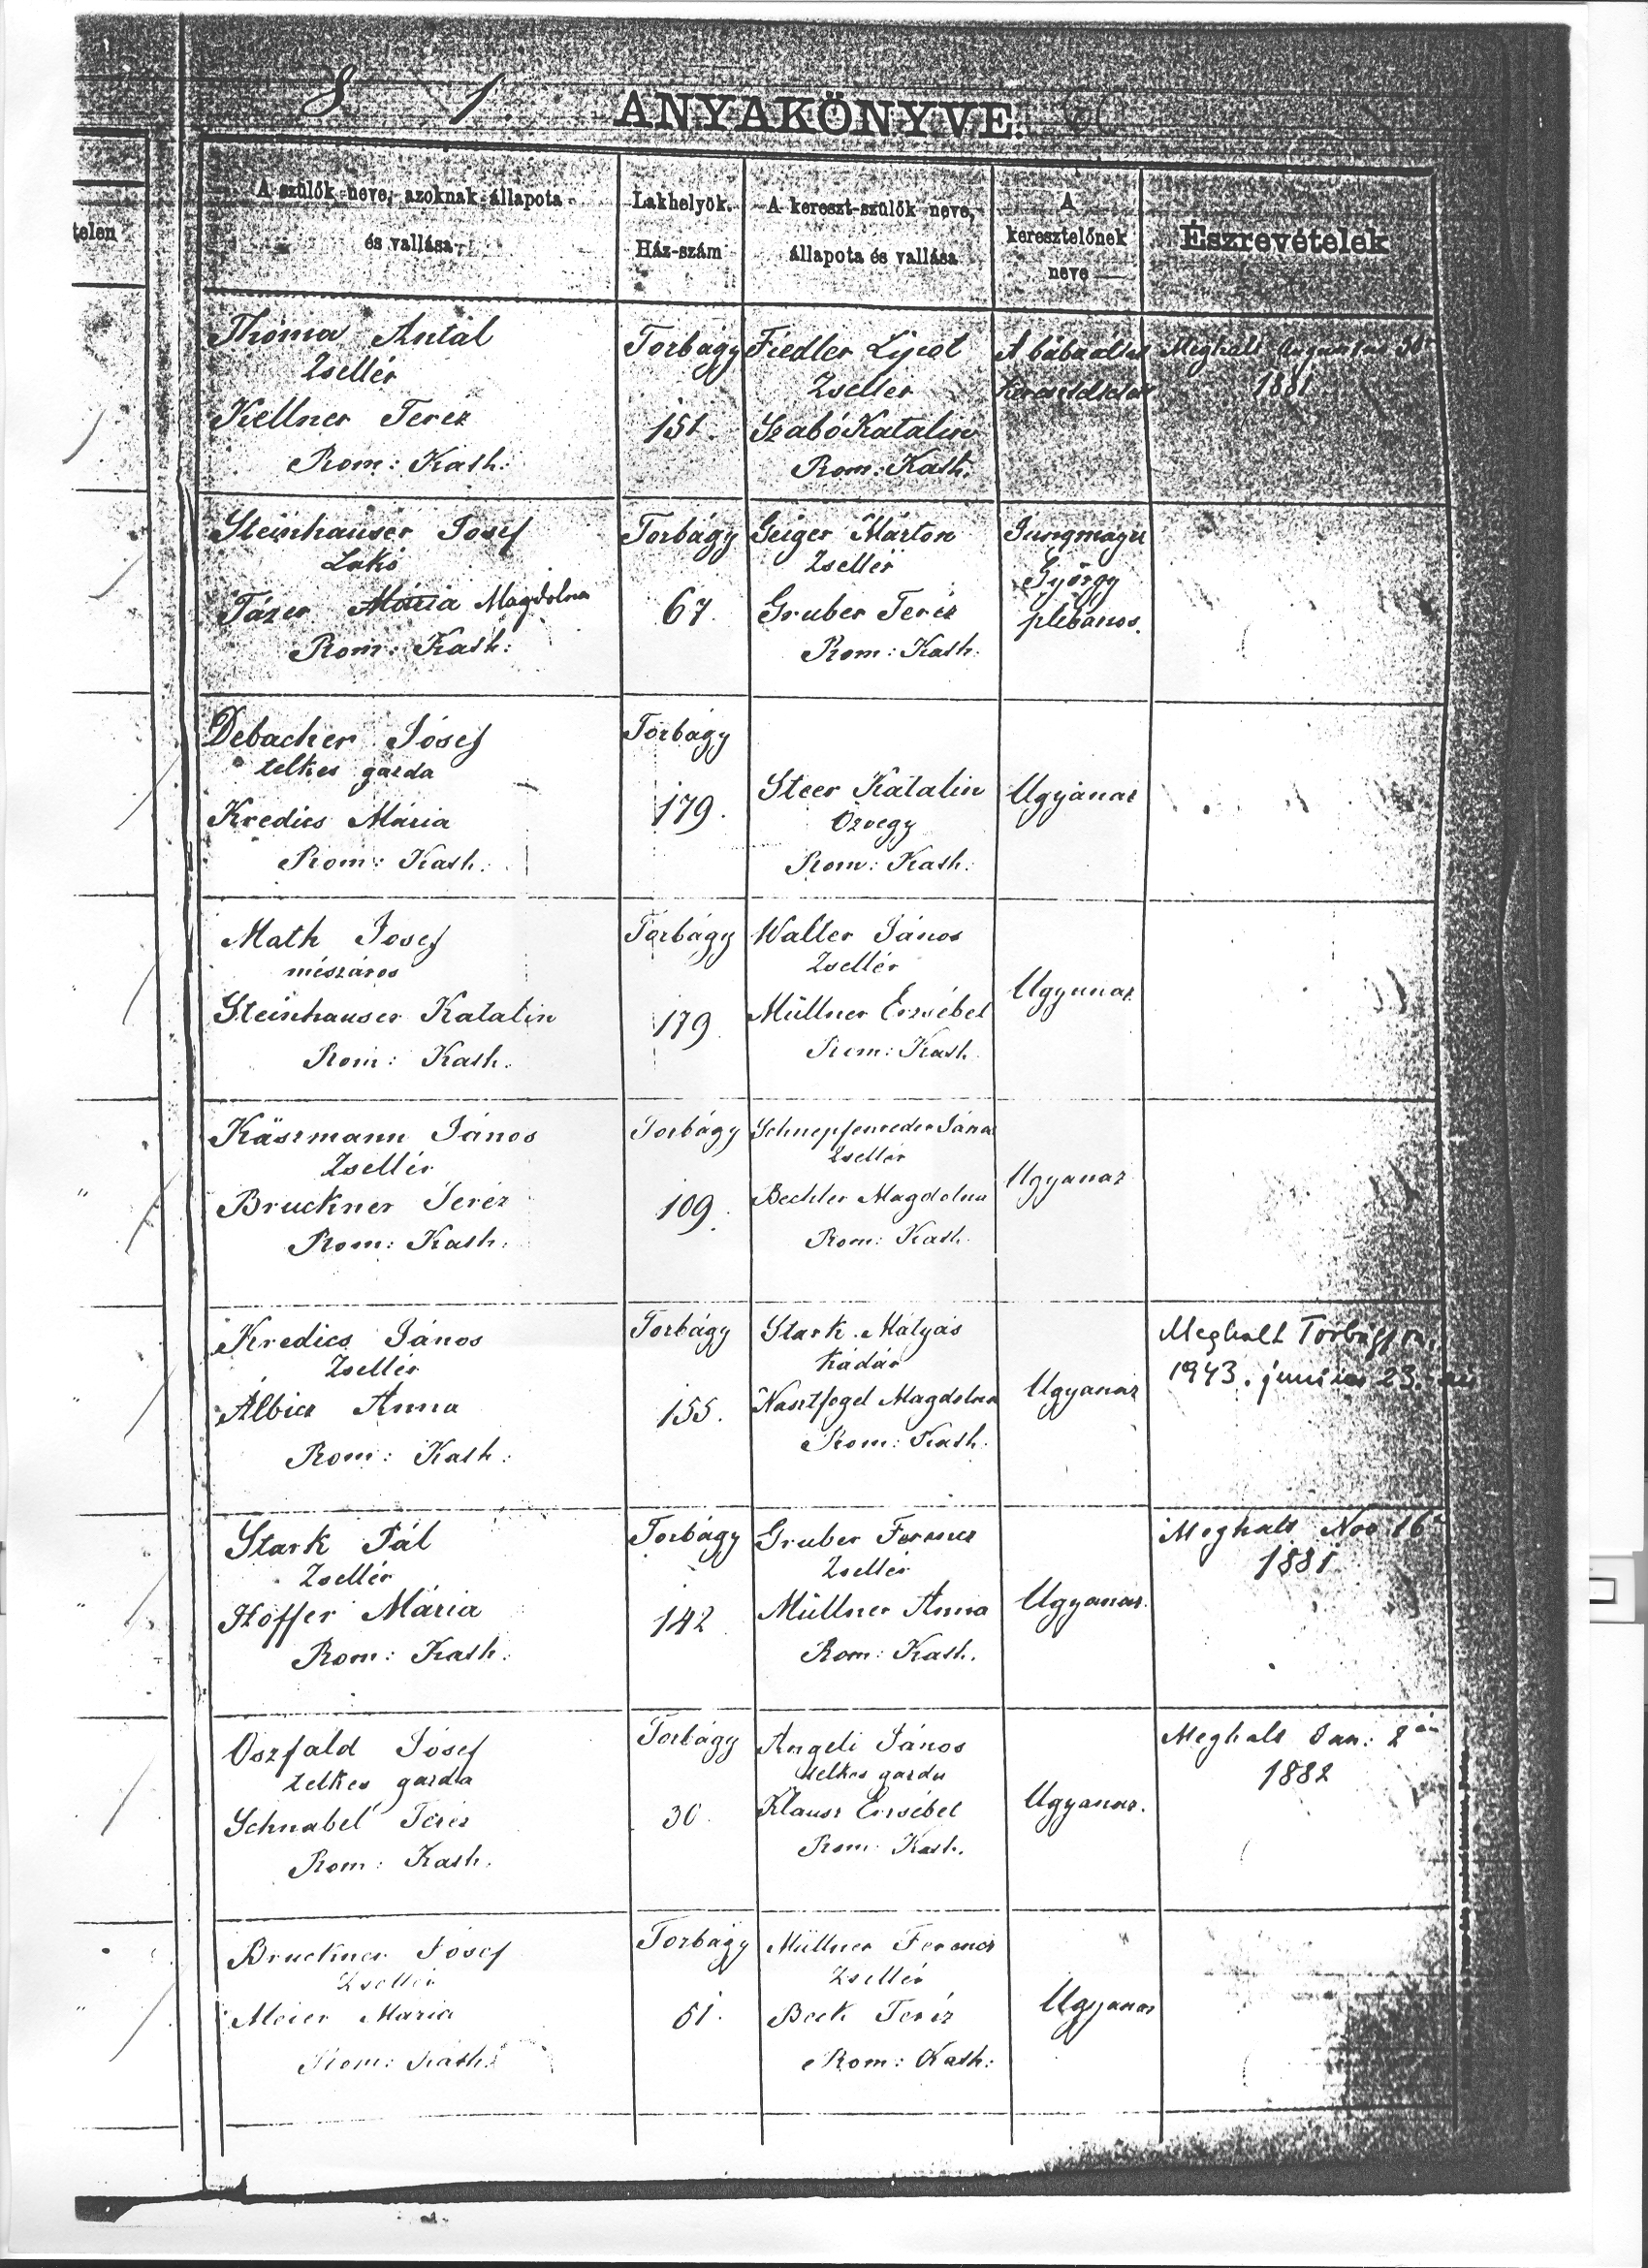 8 1. ANYAKÖNYVE.
telen
A szülők neve, azoknak állapota
és vallása
Lakhelyök.
Ház-szám
A kereszt-szülők neve,
állapota és vallása
A
keresztelőnek
neve
Észrevételek
Thoma Antal
Zsellér
Kellner Teréz
Rom: Kath:
Torbágy
151.
Fiedler Lipót
Zsellér
Szabó Katalin
Rom: Kath.
A bába által
Meghalt Augustus
1881
Steinhauser Josef
Lakó
Tázer Mária Magdolna
Rom: Kath:
Torbágy
67.
Geiger Márton
Zsellér
Gruber Teréz
Rom: Kath:
Jungmayer
György
plébános.
Debacher Jósef
telkes gazda
Kredics Mária
Rom: Kath:
Torbágy
179.
Steer Katalin
Özvegy
Rom: Kath:
Ugyanaz
Math Josef
mészáros
Steinhauser Katalin
Rom: Kath.
Torbágy
179
Walter János
Zsellér
Müllner Erzsébet
Rom: Kath
Ugyanaz
Käszmann János
Zsellér
Bruckner Teréz
Rom: Kath.
Torbágy
109.
Schnepfenreder János
Zsellér
Bechler Magdolna
Rom: Kath.
Ugyanaz
Kredics János
Zsellér
Albicz Anna
Rom: Kath:
Torbágy
155.
Stark Mátyás
Kádár
Nasztfogel Magdolna
Rom: Kath:
Ugyanaz
Meghalt Torbágyon,
1943. június 23.-án
Stark Pál
Zsellér
Hoffer Mária
Rom: Kath.
Torbágy
142
Gruber Ferencz
Zsellér
Müllner Anna
Rom: Kath.
Ugyanaz.
Meghalt Nov 16
1881
Oszfald Jósef
telkes gazda
Schnabel Teréz
Rom: Kath.
Torbágy
30.
Angeli János
telkes gazda
Klausz Erzsébet
Rom: Kath.
Ugyanaz.
Meghalt Jan: 2 án
1882
Bruckner Jósef
Zsellér
Meier Maria
Rom: Kath:
Torbágy
51.
Müllner Ferencz
Zsellér
Beck Teréz
Rom: Kath:
Ugyanaz